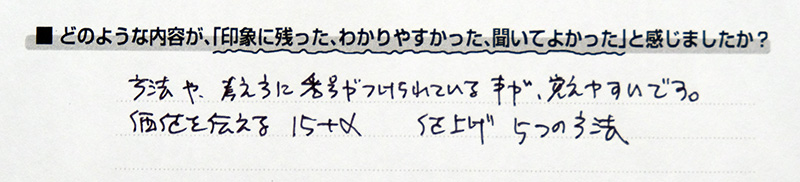 ■ どのような内容が、「印象に残った、わかりやすかった、聞いてよかった」と感じましたか?
方法や、考え方に番号がつけられている事が、覚えやすいです。
価値を伝える 15+α 仕上げ 5つの方法